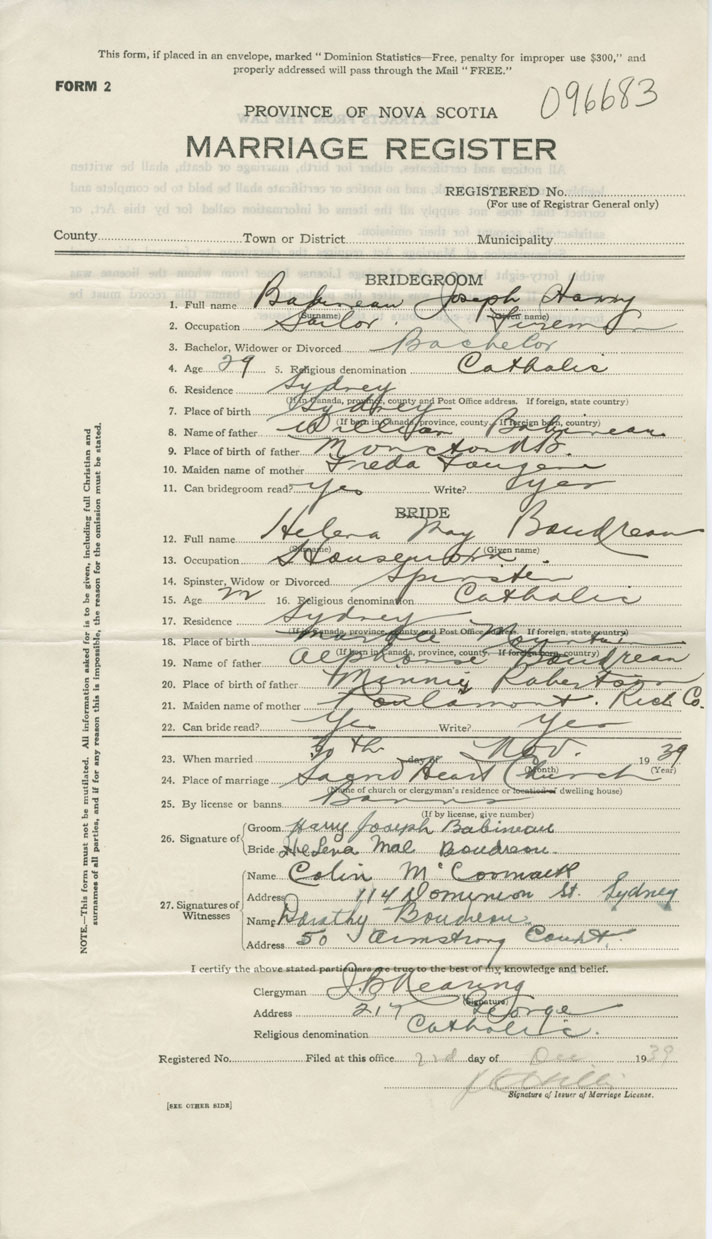 This form, if placed in an envelope, marked "Dominion Statistics—Free, penalty for improper use $300," and
properly addressed will pass through the Mail "FREE."
FORM 2
096683
PROVINCE OF NOVA SCOTIA
MARRIAGE REGISTER
REGISTERED No.
(For use of Registrar General only)
County Town or District Municipality
BRIDEGROOM
1. Full name Babineau Joseph Harry
(Surname) (Given name)
2. Occupation Sailor. Fireman
3. Bachelor, Widower or Divorced Bachelor
4. Age 29 5. Religious denomination Catholic
6. Residence Sydney
(If in Canada, province, county and Post Office address. If foreign, state country)
7. Place of birth Sydney
(If born in Canada, province, county. If foreign born, country)
8. Name of father William Babineau
9. Place of birth of father Moncton N.B.
10. Maiden name of mother Freda
11. Can bridegroom read? Yes Write? Yes
BRIDE
12. Full name Helena May Boudreau
(Surname) (Given name)
13. Occupation Housework.
14. Spinster, Widow or Divorced Spinster
15. Age 16. Religious denomination Catholic
17. Residence Sydney
(If in Canada, province, county and Post Office address. If foreign, state country)
18. Place of birth Marble Mountain
(If born in Canada, province, county. If foreign born, country)
19. Name of father Alphonse Boudreau
20. Place of birth of father Minnie Robertson
21. Maiden name of mother Poulamont. Rich Co.
22. Can bride read? Yes Write? Yes
23. When married 30th day of Nov. 1939
(Month) (Year)
24. Place of marriage Sacred Heart Church
(Name of church or clergyman's residence or located of dwelling house)
25. By license or banns Banns
(If by license, give number)
26. Signature of
Groom Harry Joseph Babineau
Bride Helena Mae Boudreau.
27. Signatures of Witnesses
Name Colin McCormack
Address 114 Dominion St. Sydney
Name Dorathy Boudreau
Address 50 Armstrong Court.
I certify the above stated particulars are true to the best of my knowledge and belief.
Clergyman
(Signature)
Address 217 George
Religious denomination Catholic.
Registered No. Filed at this office 2nd day of Dec 1939
Signature of Issuer of Marriage License.
[SEE OTHER SIDE]
NOTE.—This form must not be mutilated. All information asked for is to be given, including full Christian and
surnames of all parties, and if for any reason this is impossible, the reason for the omission must be stated.